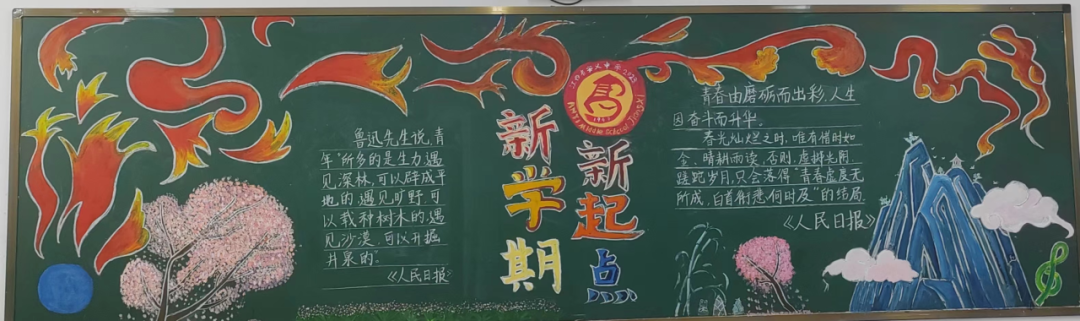 鲁迅先生说,青
年"所多的是生力,遇
见深林,可以辟成平
地的,遇见旷野,可
以栽种树木的,遇
见沙漠,可以开掘
井泉的。"
《人民日报》
新学期
新起点
青春由磨砺而出彩,人生
因奋斗而升华。
春光灿烂之时,唯有惜时如
金、晴耕雨读,否则,虚掷光阴,
蹉跎岁月,只会落得"青春虚度无
所成,白首衔悲何时及"的结局。
《人民日报》